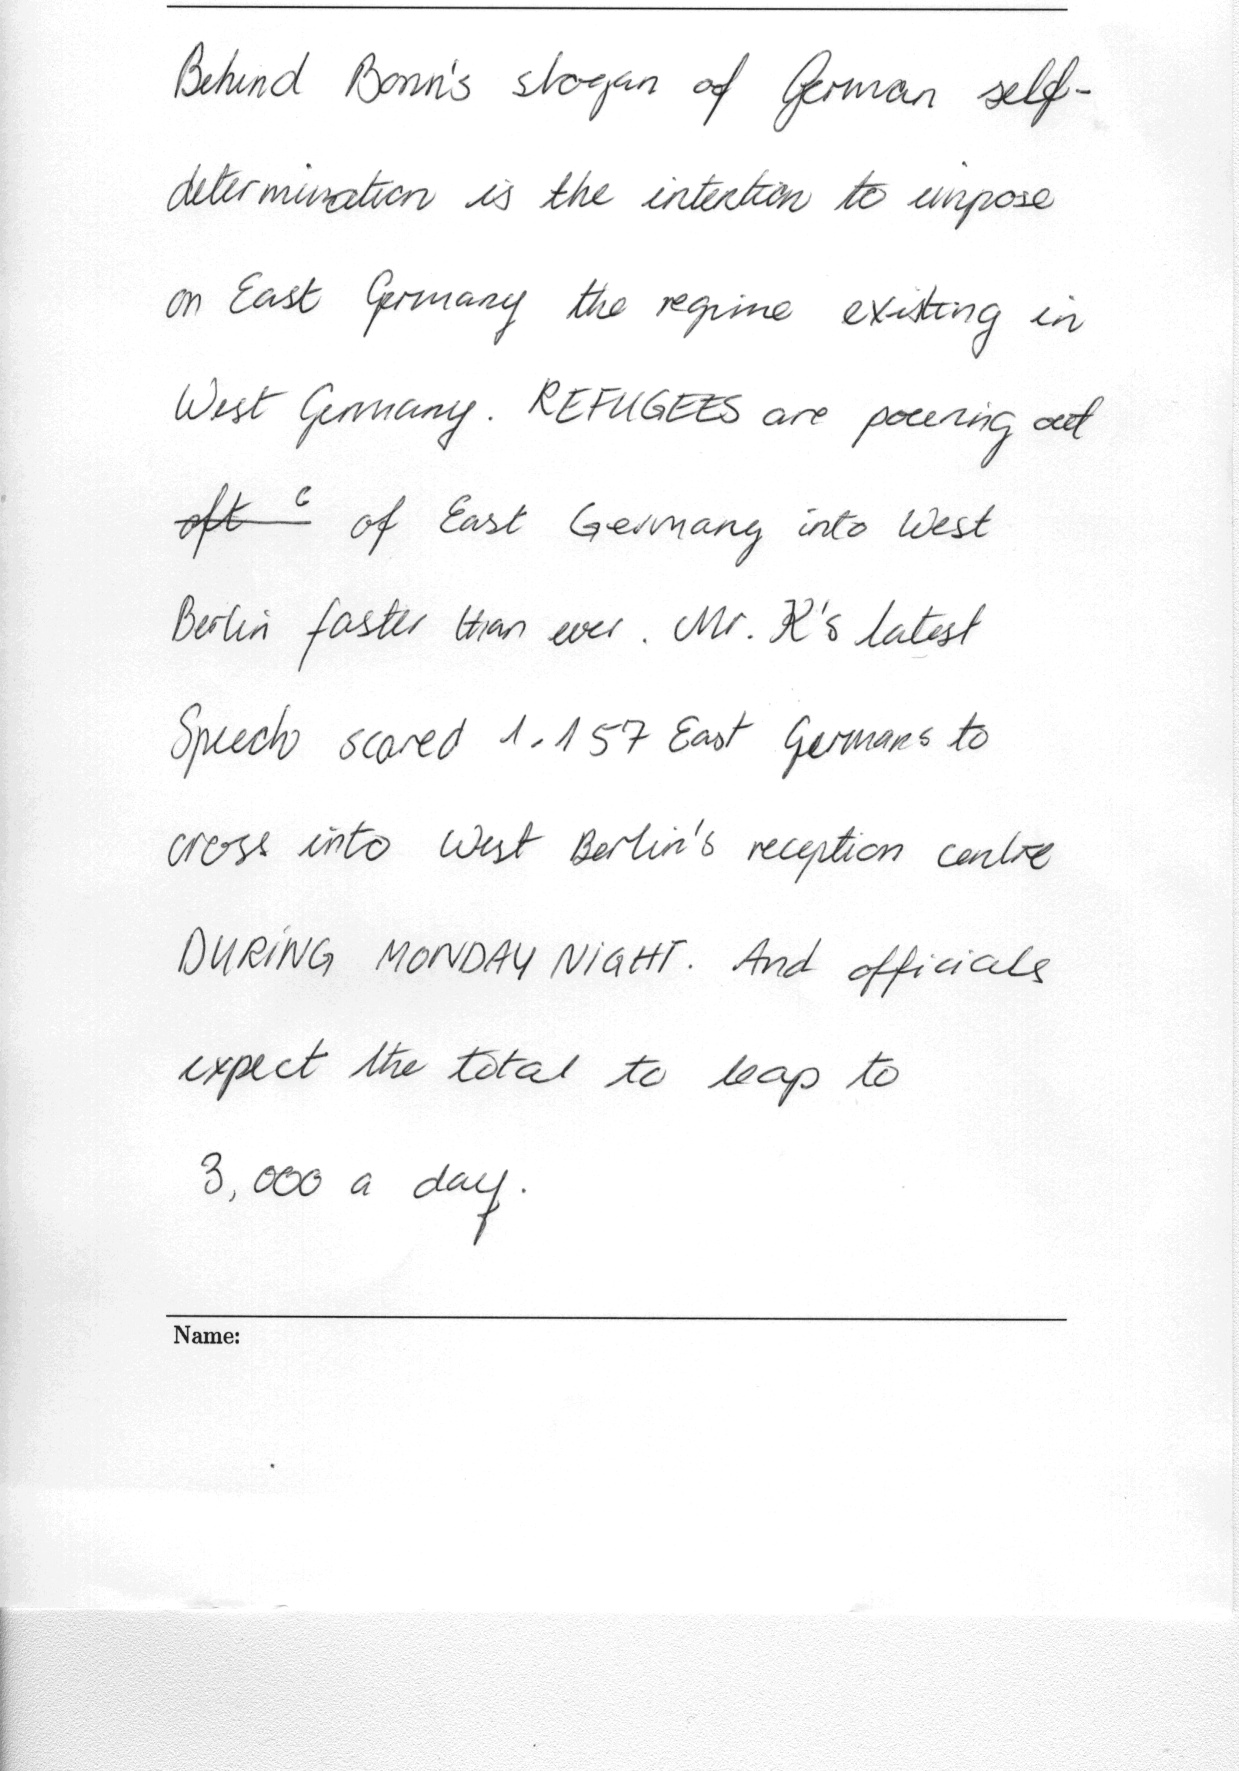 Behind Bonn's slogan of German self-
determination is the intention to impose
on East Germany the regime existing in
West Germany. REFUGEES are pouring out
of East Germany into West
Berlin faster than ever. Mr. K's latest
Speech scared 1,157 East Germans to
cross into West Berlin's reception centre
DURING MONDAY NIGHT. And officials
expect the total to leap to
3,000 a day.
Name: